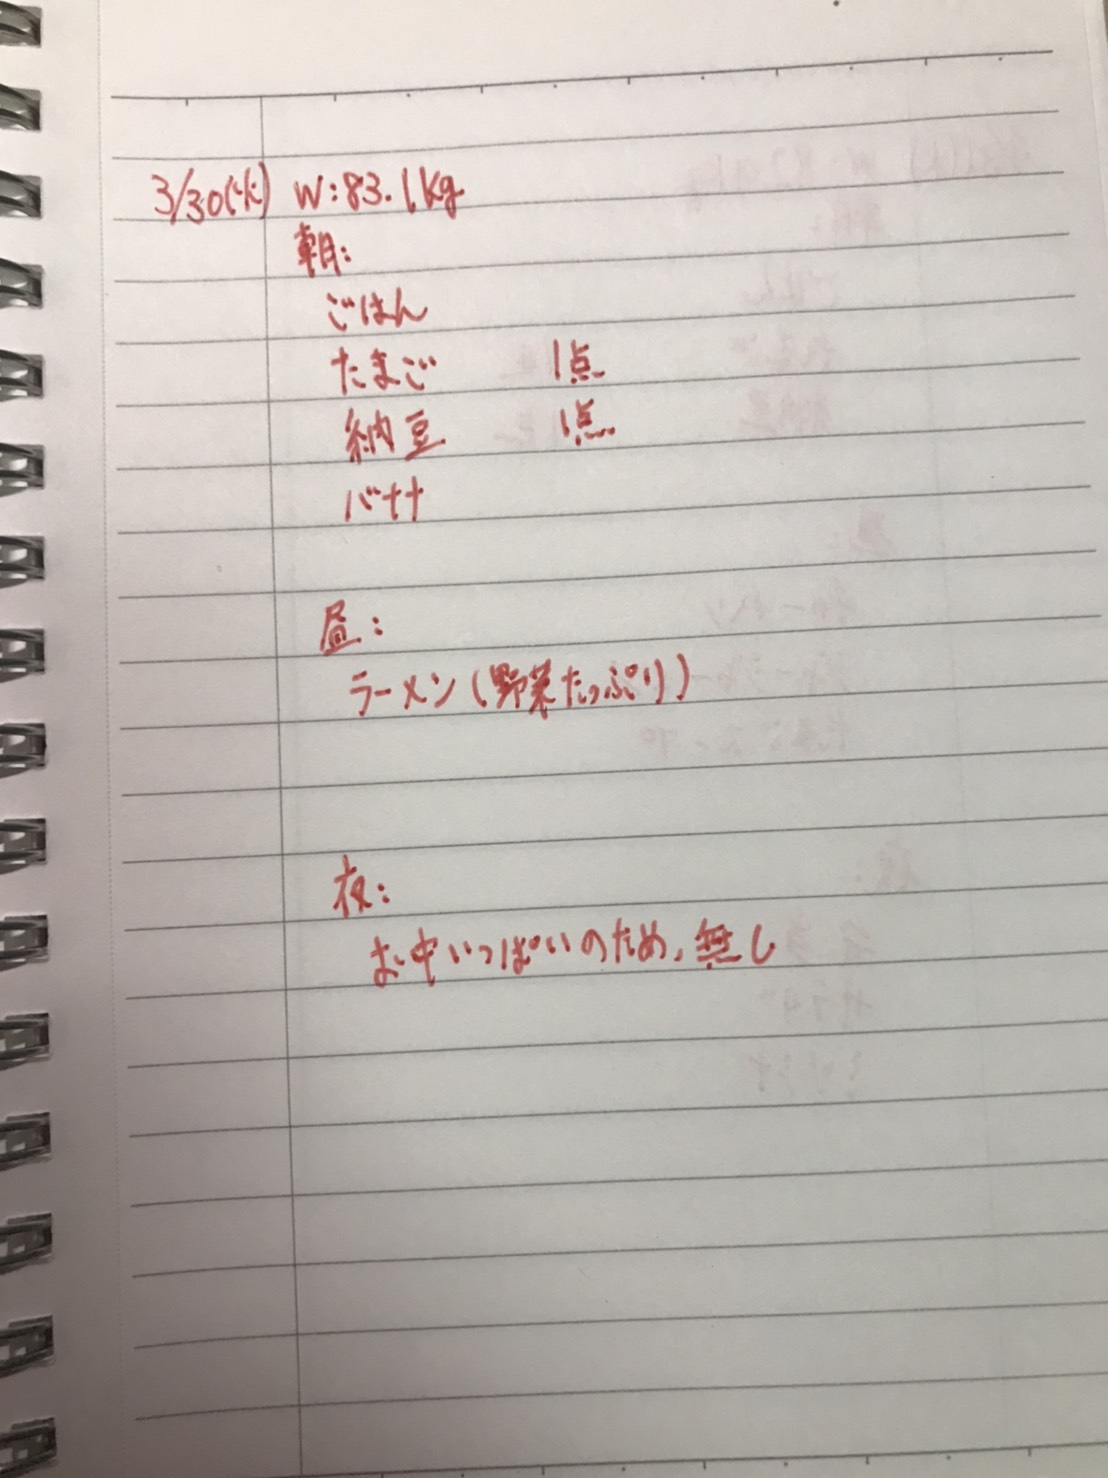 3/30(火) W:83.1kg
朝:
ごはん
たまご 1点
納豆 1点
バナナ
昼:
ラーメン(野菜たっぷり)
夜:
お中いっぱいのため、無し